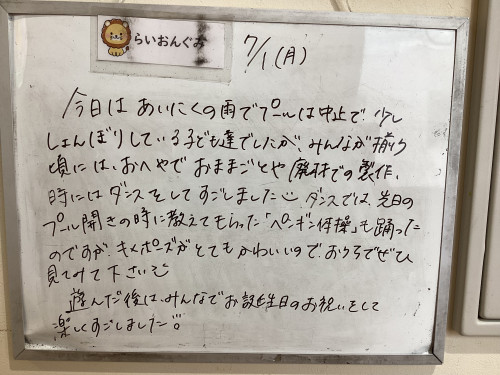 らいおんぐみ
7/1(月)
今日は あいにくの雨でプールは中止で、少し
しょんぼりしている子ども達でしたが、みんなが揃う
頃には、おへやでおままごとや廃材での製作、
時にはダンスをしてすごしました ダンスでは、先日の
プール開きの時に教えてもらった「ペンギン体操」も踊った
のですが、キメポーズがとてもかわいいので、おうちでぜひ
見てみて下さい
遊んだ後は、みんなでお誕生日のお祝いをして
楽しくすごしました